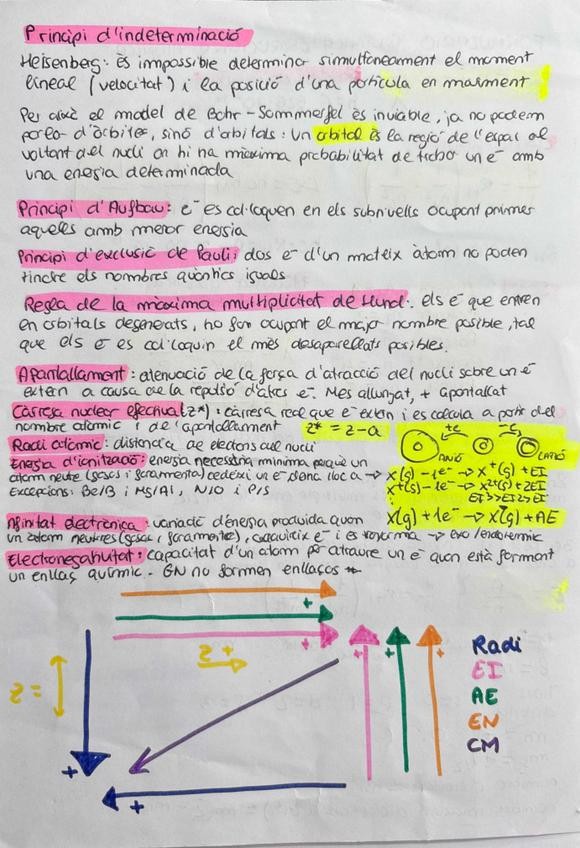 Principi d'indeterminació
Heisenberg: És impossible determinar simultàneament el moment
lineal (velocitat) i la posició d'una partícula en moviment
Per això el model de Bohr-Sommerfel és inviable, ja no podem
parlar d'òrbites, sinó d'orbitals: Un orbital és la regió de l'espai al
voltant del nucli on hi ha màxima probabilitat de trobar un e⁻ amb
una energia determinada
Principi d'Aufbau: e⁻ es col·loquen en els subnivells ocupant primer
aquells amb menor energia
Principi d'exclusió de Pauli: dos e⁻ d'un mateix àtom no poden
tindre els nombres quàntics iguals
Regla de la màxima multiplicitat de Hund: els e⁻ que entren
en orbitals degenerats, ho fan ocupant el major nombre posible, tal
que els e⁻ es col·loquin el més desaparellats posibles.
Apantallament: atenuació de la força d'atracció del nucli sobre un e⁻
extern a causa de la repulsió d'altres e⁻. Mes allunyat, + apantallat
Càrrega nuclear efectiva (z*): càrrega real que e⁻ extern i es calcula a partir del
nombre atòmic i de l'apantallament z* = z-a
Radi atòmic: distància de electrons al nucli
+e⁻ -e⁻
ANIÓ CATIÓ
Energia d'ionització: energia necessària mínima perquè un
àtom neutre (gasós i fonamental) cedeixi un e⁻ dona lloc a → X(g) - 1e⁻ → X⁺(g) + EI
X⁺(g) - 1e⁻ → X²⁺(g) + 2EI
Excepcions: Be/B i Mg/Al, N/O i P/S
Afinitat electrònica: variació d'energia produida quan
X(g) + 1e⁻ → X⁻(g) + AE
un àtom neutre (gasós, fonamental), adquireix e⁻ i es → exo/endotèrmic
Electronegativitat: capacitat d'un àtom per atraure un e⁻ quan està formant
un enllaç químic. GN no formen enllaços
+
+
+
z +
z =
+ + +
Radi
EI
AE
EN
CM
+
+